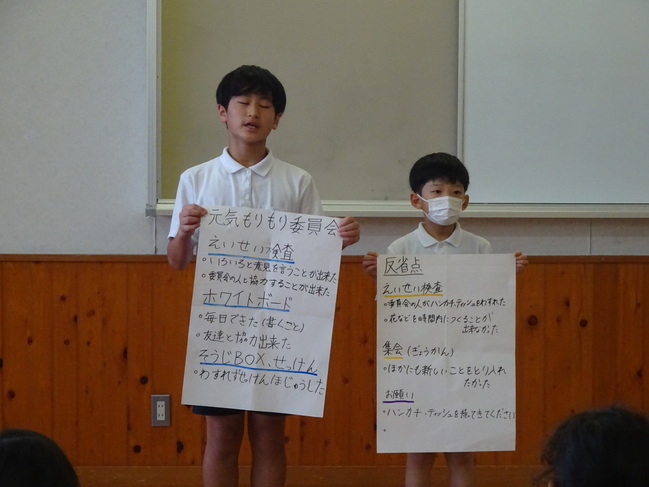 元気もりもり委員会
えいせい検査
・いろいろと意見を言うことが出来た
・委員会の人と協力することが出来た
ホワイトボード
・毎日できた(書くこと)
・友達と協力出来た
そうじBOX、せっけん
・わすれずせっけんほじゅうした
反省点
えいせい検査
・委員会の人がハンカチ、ティッシュをわすれた
・花などを時間内につくることが
出来なかった
集会(ぎょうかん)
・ほかにも新しいことをとり入れ
たかった
お願い
・ハンカチ・ティッシュを持ってきてください